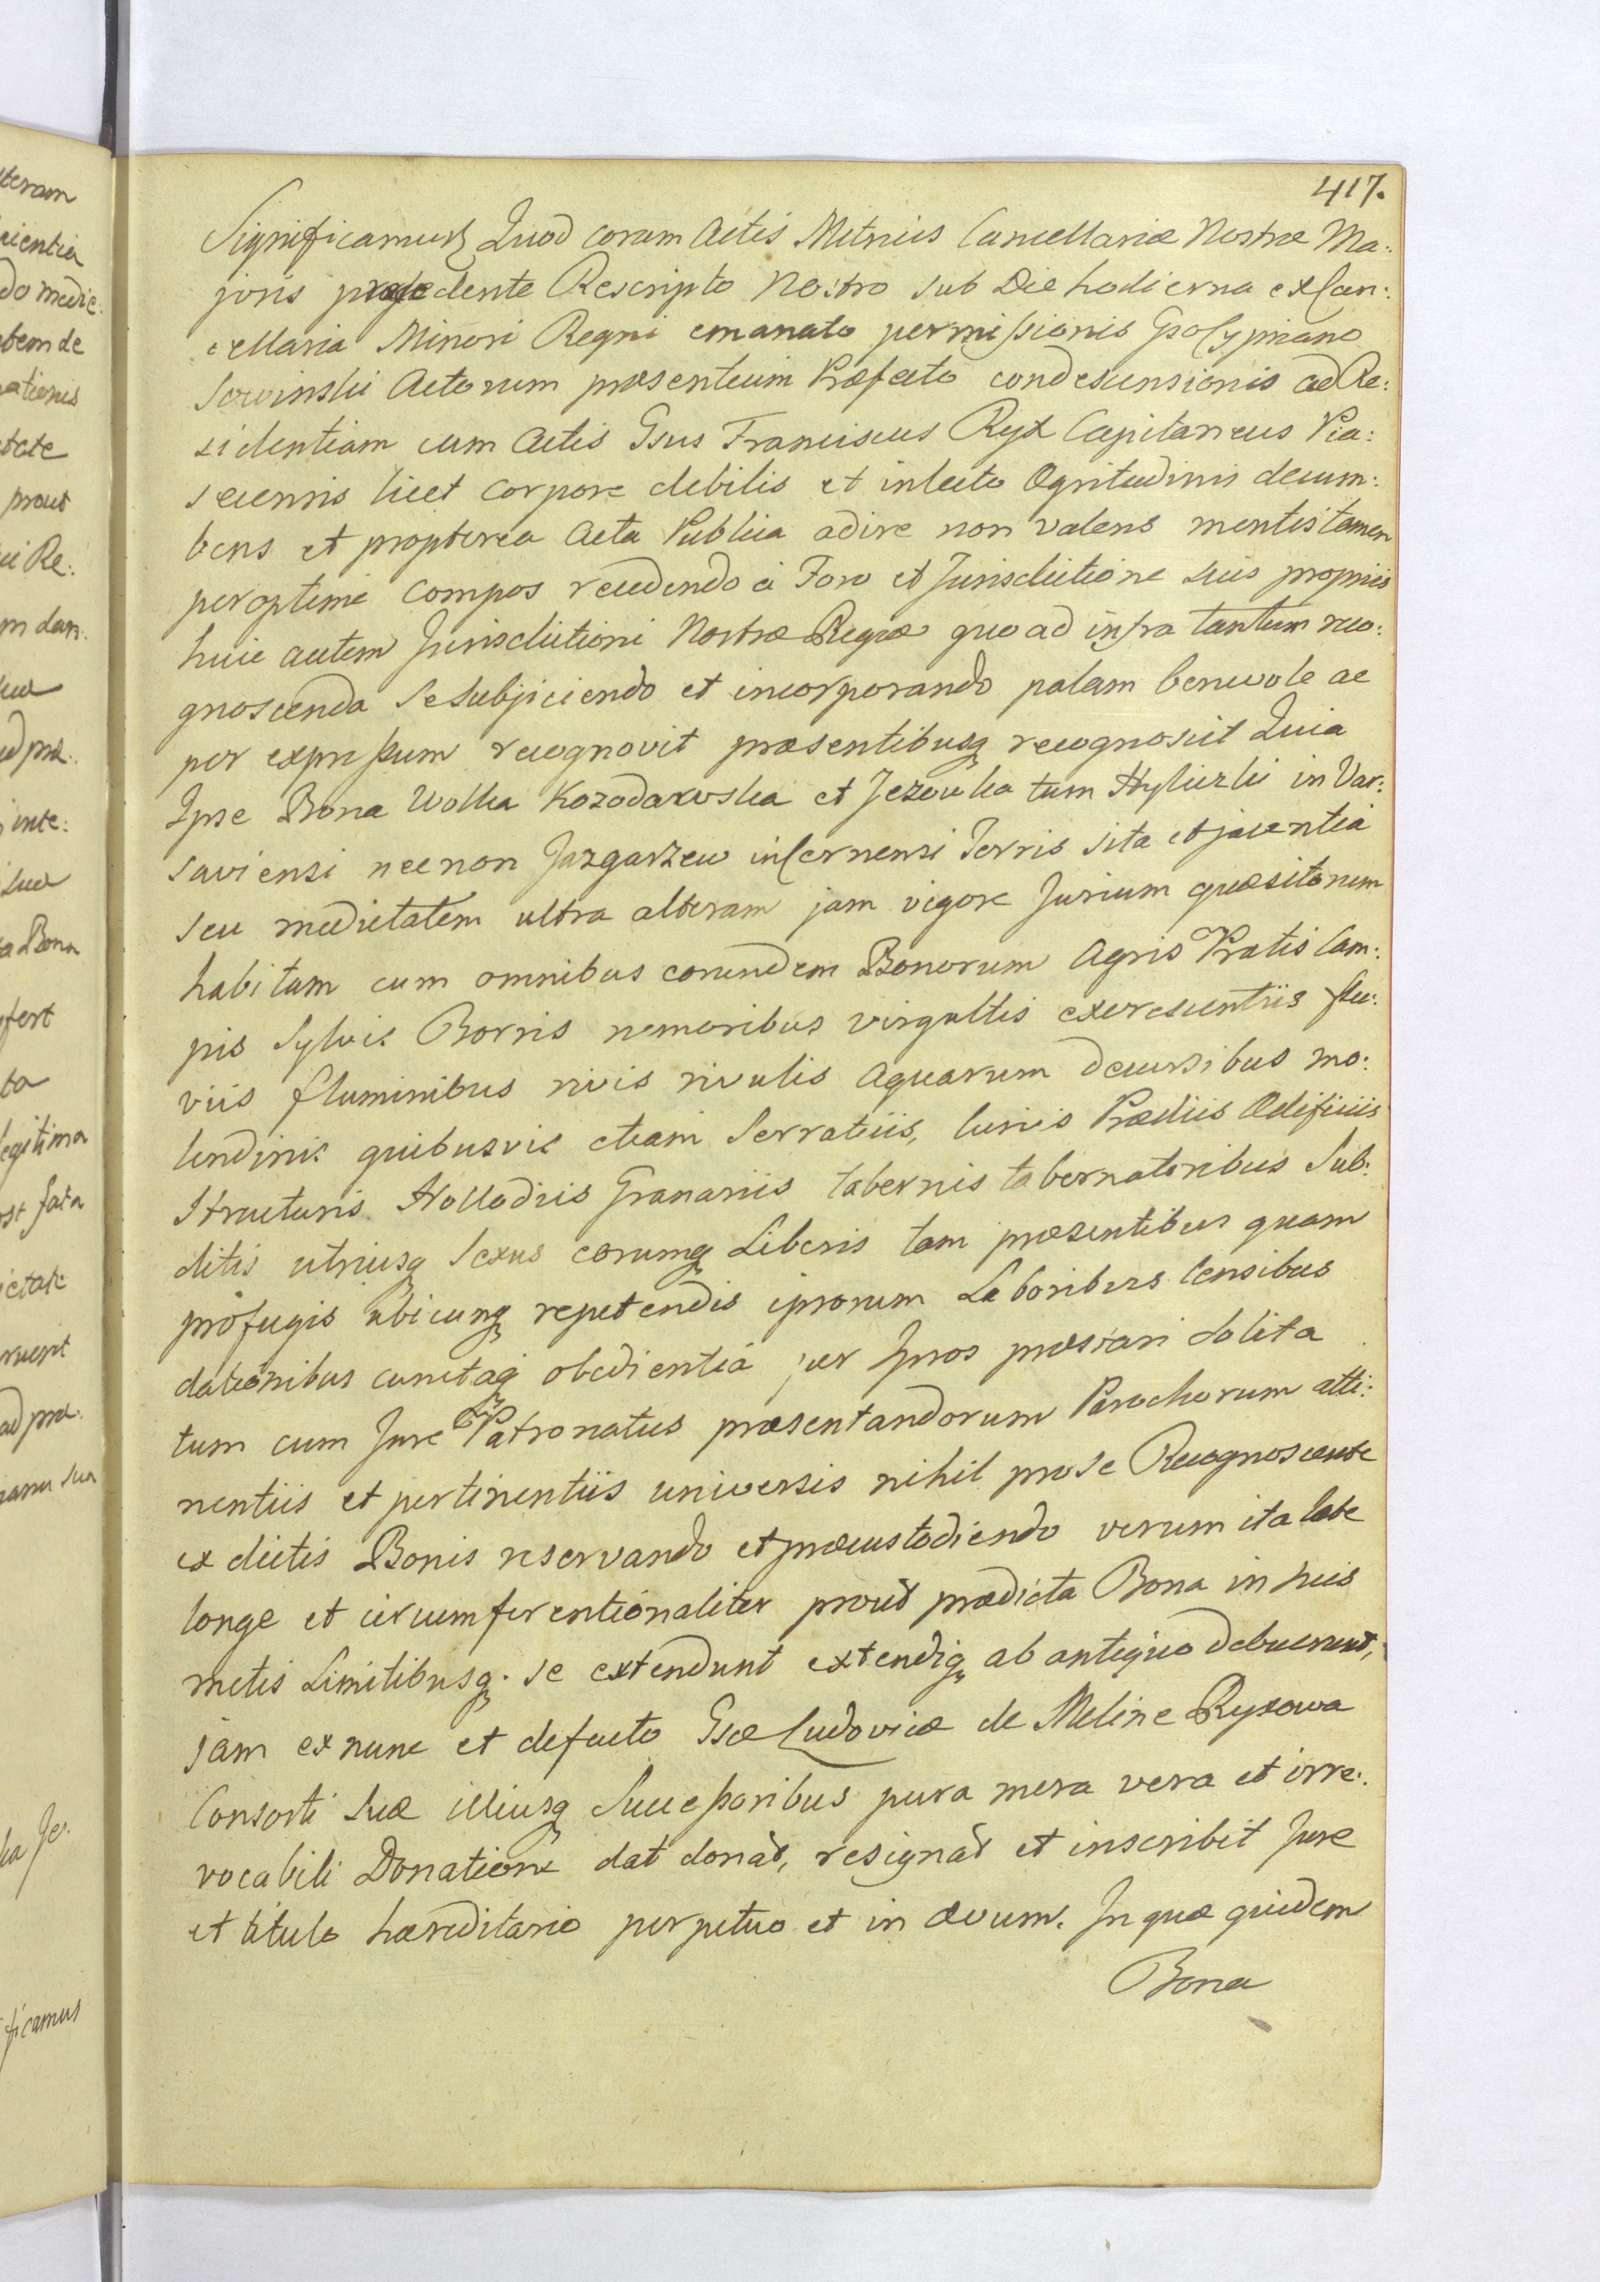 417.
Significamusq Quod coram Actis Metrices Cancellariæ Nostræ Ma:
joris præcedente Rescripto Nostro sub Die hodierna ex Can:
cellaria Minori Regni emanato permissionis Gso Cypriano
Sowinski Actorum præsentium Præfecto condescensionis ad Re:
sidentiam cum Actis Gsus Franciscus Ryx Capitaneus Pia:
secensis licet corpore debilis et in lecto Ægritudinis decum:
bens et propterea Acta Publica adire non valens mentis tamen
peroptime compos recedendo à Foro et Jurisdictione suis propriis
huic autem Jurisdictioni Nostræ Regiæ quo ad infra tantum reco:
gnoscenda se subjiciendo et incorporando palam benevole ac
per expressum recognovit præsentibusq recognoscit Quia
Ipse Bona Wolka Kozodawska et Jezowka tum Hyliczki in Var:
saviensi nec non Jazgarzew in Cernensi Terris sita et jacentia
seu medietatem ultra alteram jam vigore Jurium quæsitorum
habitam cum omnibus eorundem Bonorum Agris Pratis Cam:
pis Sylvis Borris nemoribus virgultis excrescentiis flu:
viis fluminibus rivis rivulis aquarum decursibus mo:
lendinis quibusvis etiam Serratiis, Curiis Prædiis Ædificiis
Structuris Hollodiis Granariis tabernis tabernatoribus Sub:
ditis utriusq Sexus eorumq Liberis tam præsentibus quam
profugis ubicunq repetendis ipsorum Laboribus Censibus
dationibus cunctaq obedientia per Ipsos præstari solita
tum cum Jure Patronatus præsentandorum Parochorum atti:
nentiis et pertinentiis universis nihil pro se Recognoscente
ex dictis Bonis reservando et præcustodiendo verum ita late
longe et circumferentionaliter prout prædicta Bona in suis
metis Limitibusq. se extendunt extendiq ab antiquo debuerunt,
jam ex nunc et de facto Gsæ Ludovicæ de Meline Ryxowa
Consorti suæ illiusq Successoribus pura mera vera et irre:
vocabili Donatione dat donat, resignat et inscribit Jure
et titulo hæreditario perpetuo et in ævum. In quæ quidem
Bona